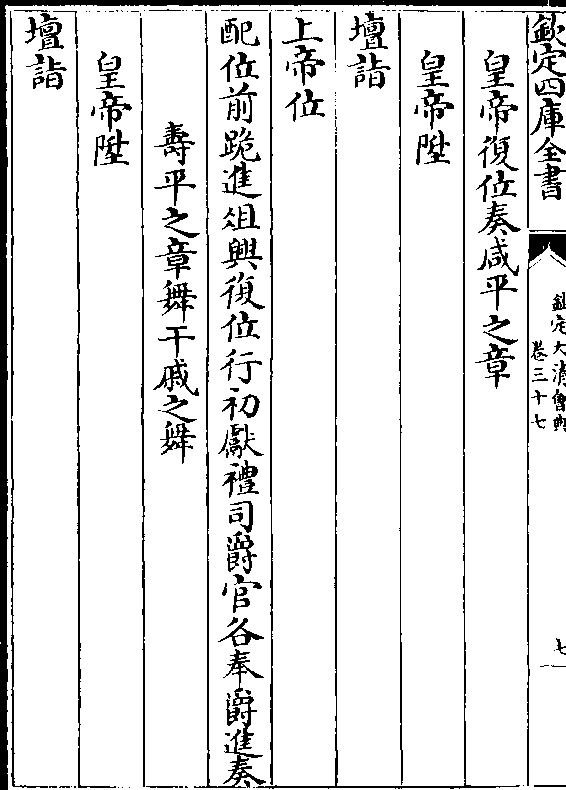 欽定四庫全書
欽定大清會典
卷三十七
七
皇帝復位奏咸平之章
皇帝陞
壇詣
上帝位
配位前跪進俎興復位行初獻禮司爵官各奉爵進奏
壽平之章舞干戚之舞
皇帝陞
壇詣